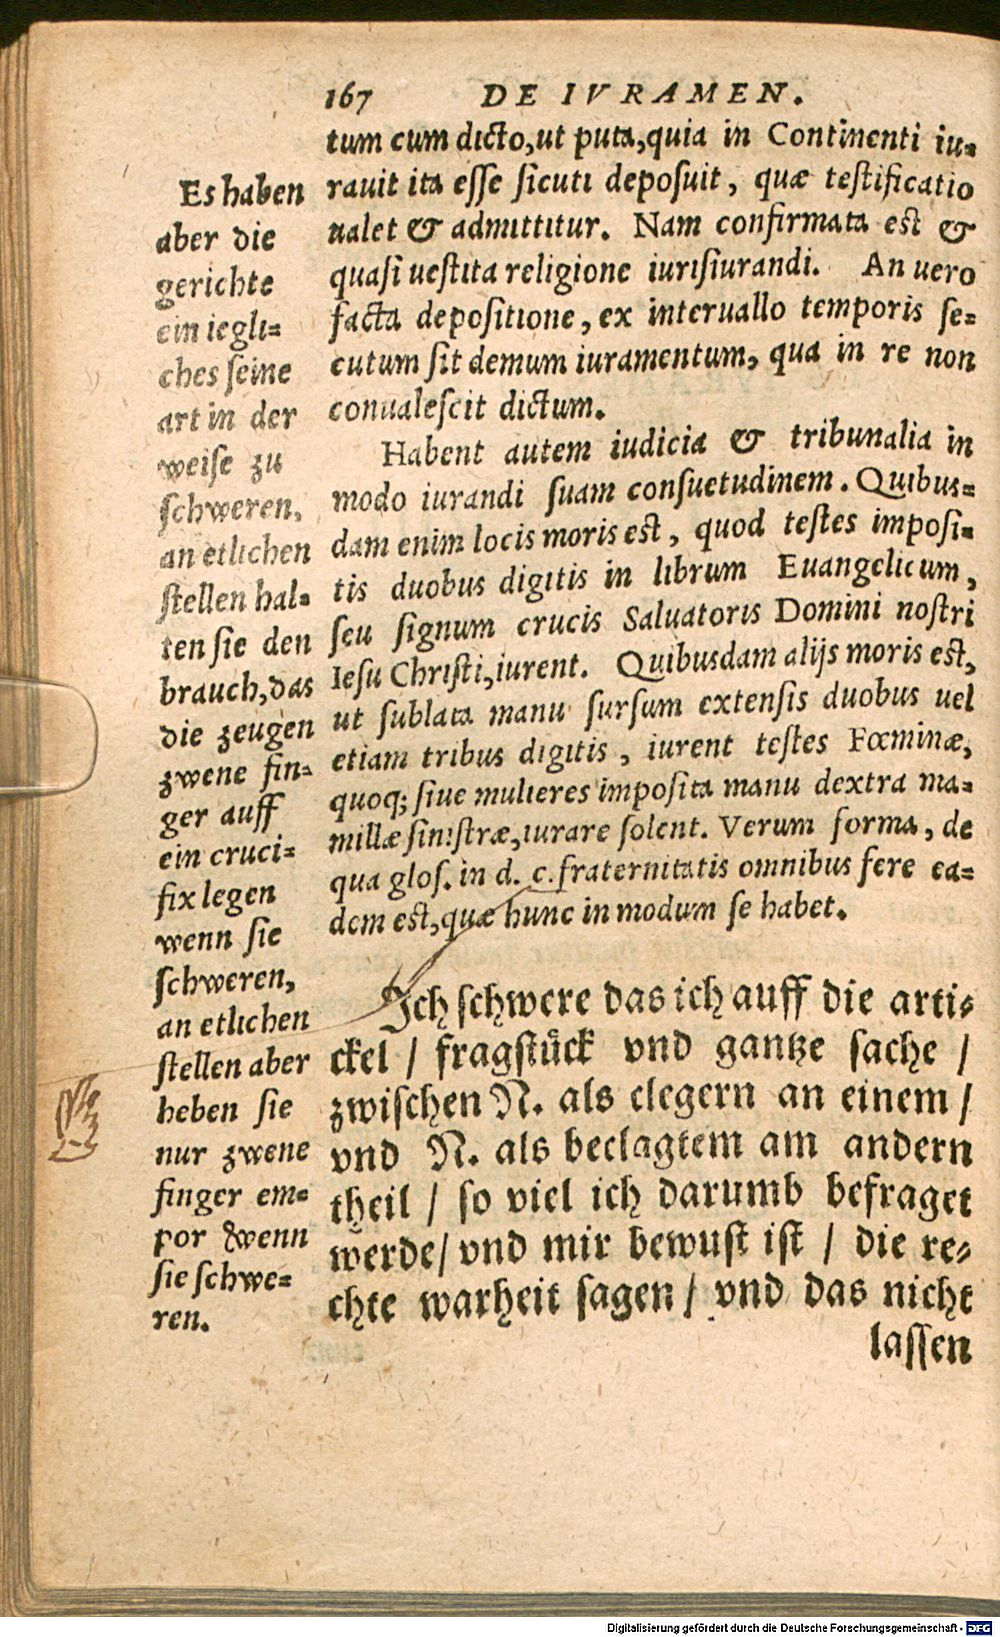 167 DE IVRAMEN.
tum cum dicto, ut puta, quia in Continenti iu-
rauit ita esse sicuti deposuit, quæ testificatio
ualet & admittitur. Nam confirmata est &
quasi uestita religione iurisiurandi. An uero
facta depositione, ex interuallo temporis se-
cutum sit demum iuramentum, qua in re non
conualescit dictum.
Habent autem iudicia & tribunalia in
modo iurandi suam consuetudinem. Quibus-
dam enim locis moris est, quod testes imposi-
tis duobus digitis in librum Euangelicum,
seu signum crucis Saluatoris Domini nostri
Iesu Christi, iurent. Quibusdam alijs moris est,
ut sublata manu sursum extensis duobus uel
etiam tribus digitis, iurent testes Fœminæ,
quoq; siue mulieres imposita manu dextra ma-
millæ sinistræ, iurare solent. Verum forma, de
qua glos. in d. c. fraternitatis omnibus fere ea-
dem est, quæ hunc in modum se habet.
Ich schwere das ich auff die arti-
ckel / fragstück vnd gantze sache /
zwischen N. als clegern an einem /
vnd N. als beclagtem am andern
theil / so viel ich darumb befraget
werde / vnd mir bewust ist / die re-
chte warheit sagen / vnd das nicht
lassen
Es haben
aber die
gerichte
ein iegli-
ches seine
art in der
weise zu
schweren,
an etlichen
stellen hal-
ten sie den
brauch, das
die zeugen
zwene fin-
ger auff
ein cruci-
fix legen
wenn sie
schweren,
an etlichen
stellen aber
heben sie
nur zwene
finger em-
por wenn
sie schwe-
ren.
Digitalisierung gefördert durch die Deutsche Forschungsgemeinschaft - DFG